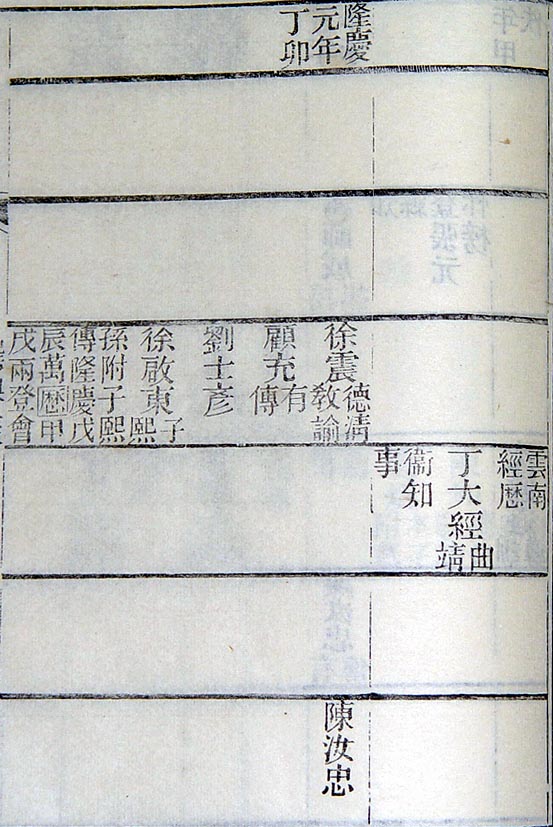 雲南
經厯
丁大經
曲
靖
衞知
事
隆慶
元年
丁卯
徐震
德清
教諭
顧充
有
傳
劉士彥
徐啟東
子
熙
孫附子熙
傳隆慶戊
辰萬曆甲
戌兩登會
陳汝忠